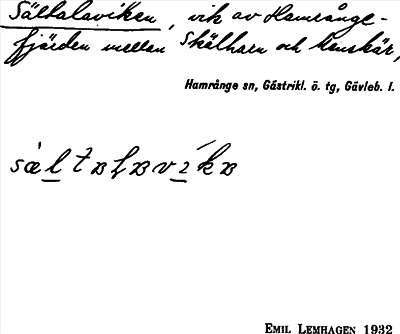 Sältalaviken, vik av Hamrånge-
fjärden mellan Skälharn och Kenskär,
Hamrånge sn, Gästrikl. ö. tg, Gävleb. l.
EMIL LEMHAGEN 1932